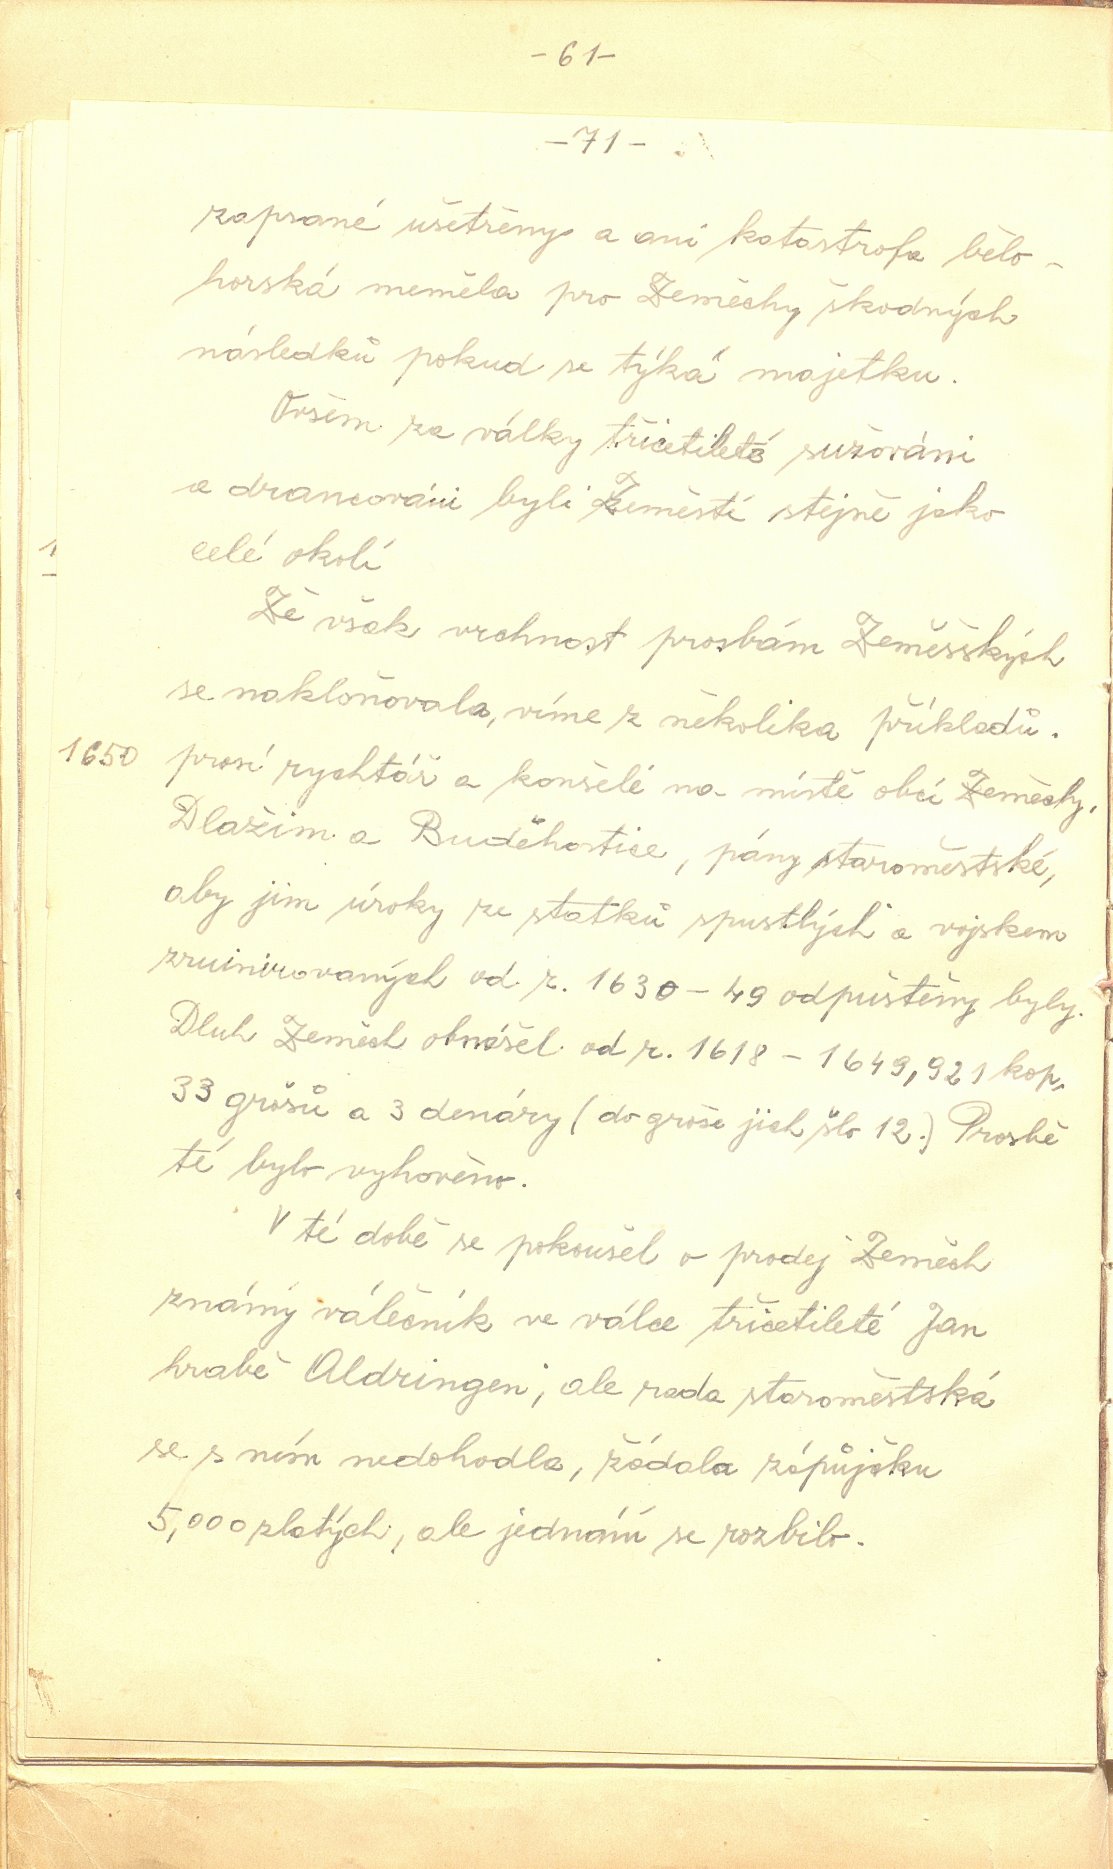 -61-
-71-
zaprané ušetřeny a ani katastrofa bělo-
horská neměla pro Zeměchy škodných
následků pokud se týká majetku.
Ovšem za války třicetileté sužováni
a drancováni byli Zeměští stejně jako
celé okolí
Že však vrchnost prosbám Zeměšských
se nakloňovala, víme z několika příkladů.
1650 prosí rychtář a konšelé na místě obcí Zeměchy,
Dlažim a Budĕhostice, pány staroměstské,
aby jim úroky ze statků spustlých a vojskem
zruinirovaných od r. 1630 - 49 odpuštěny byly.
Dluh Zeměch obnášel od r. 1618 - 1649, 921 kop,
33 grošů a 3 denáry (do groše jich šlo 12.) Prosbě
té bylo vyhověno.
V té době se pokoušel o prodej Zeměch
známý válečník ve válce třicetileté Jan
hrabě Aldringen, ale rada staroměstská
se s ním nedohodla, žádala zápůjčku
5,000 zlatých, ale jednání se rozbilo.